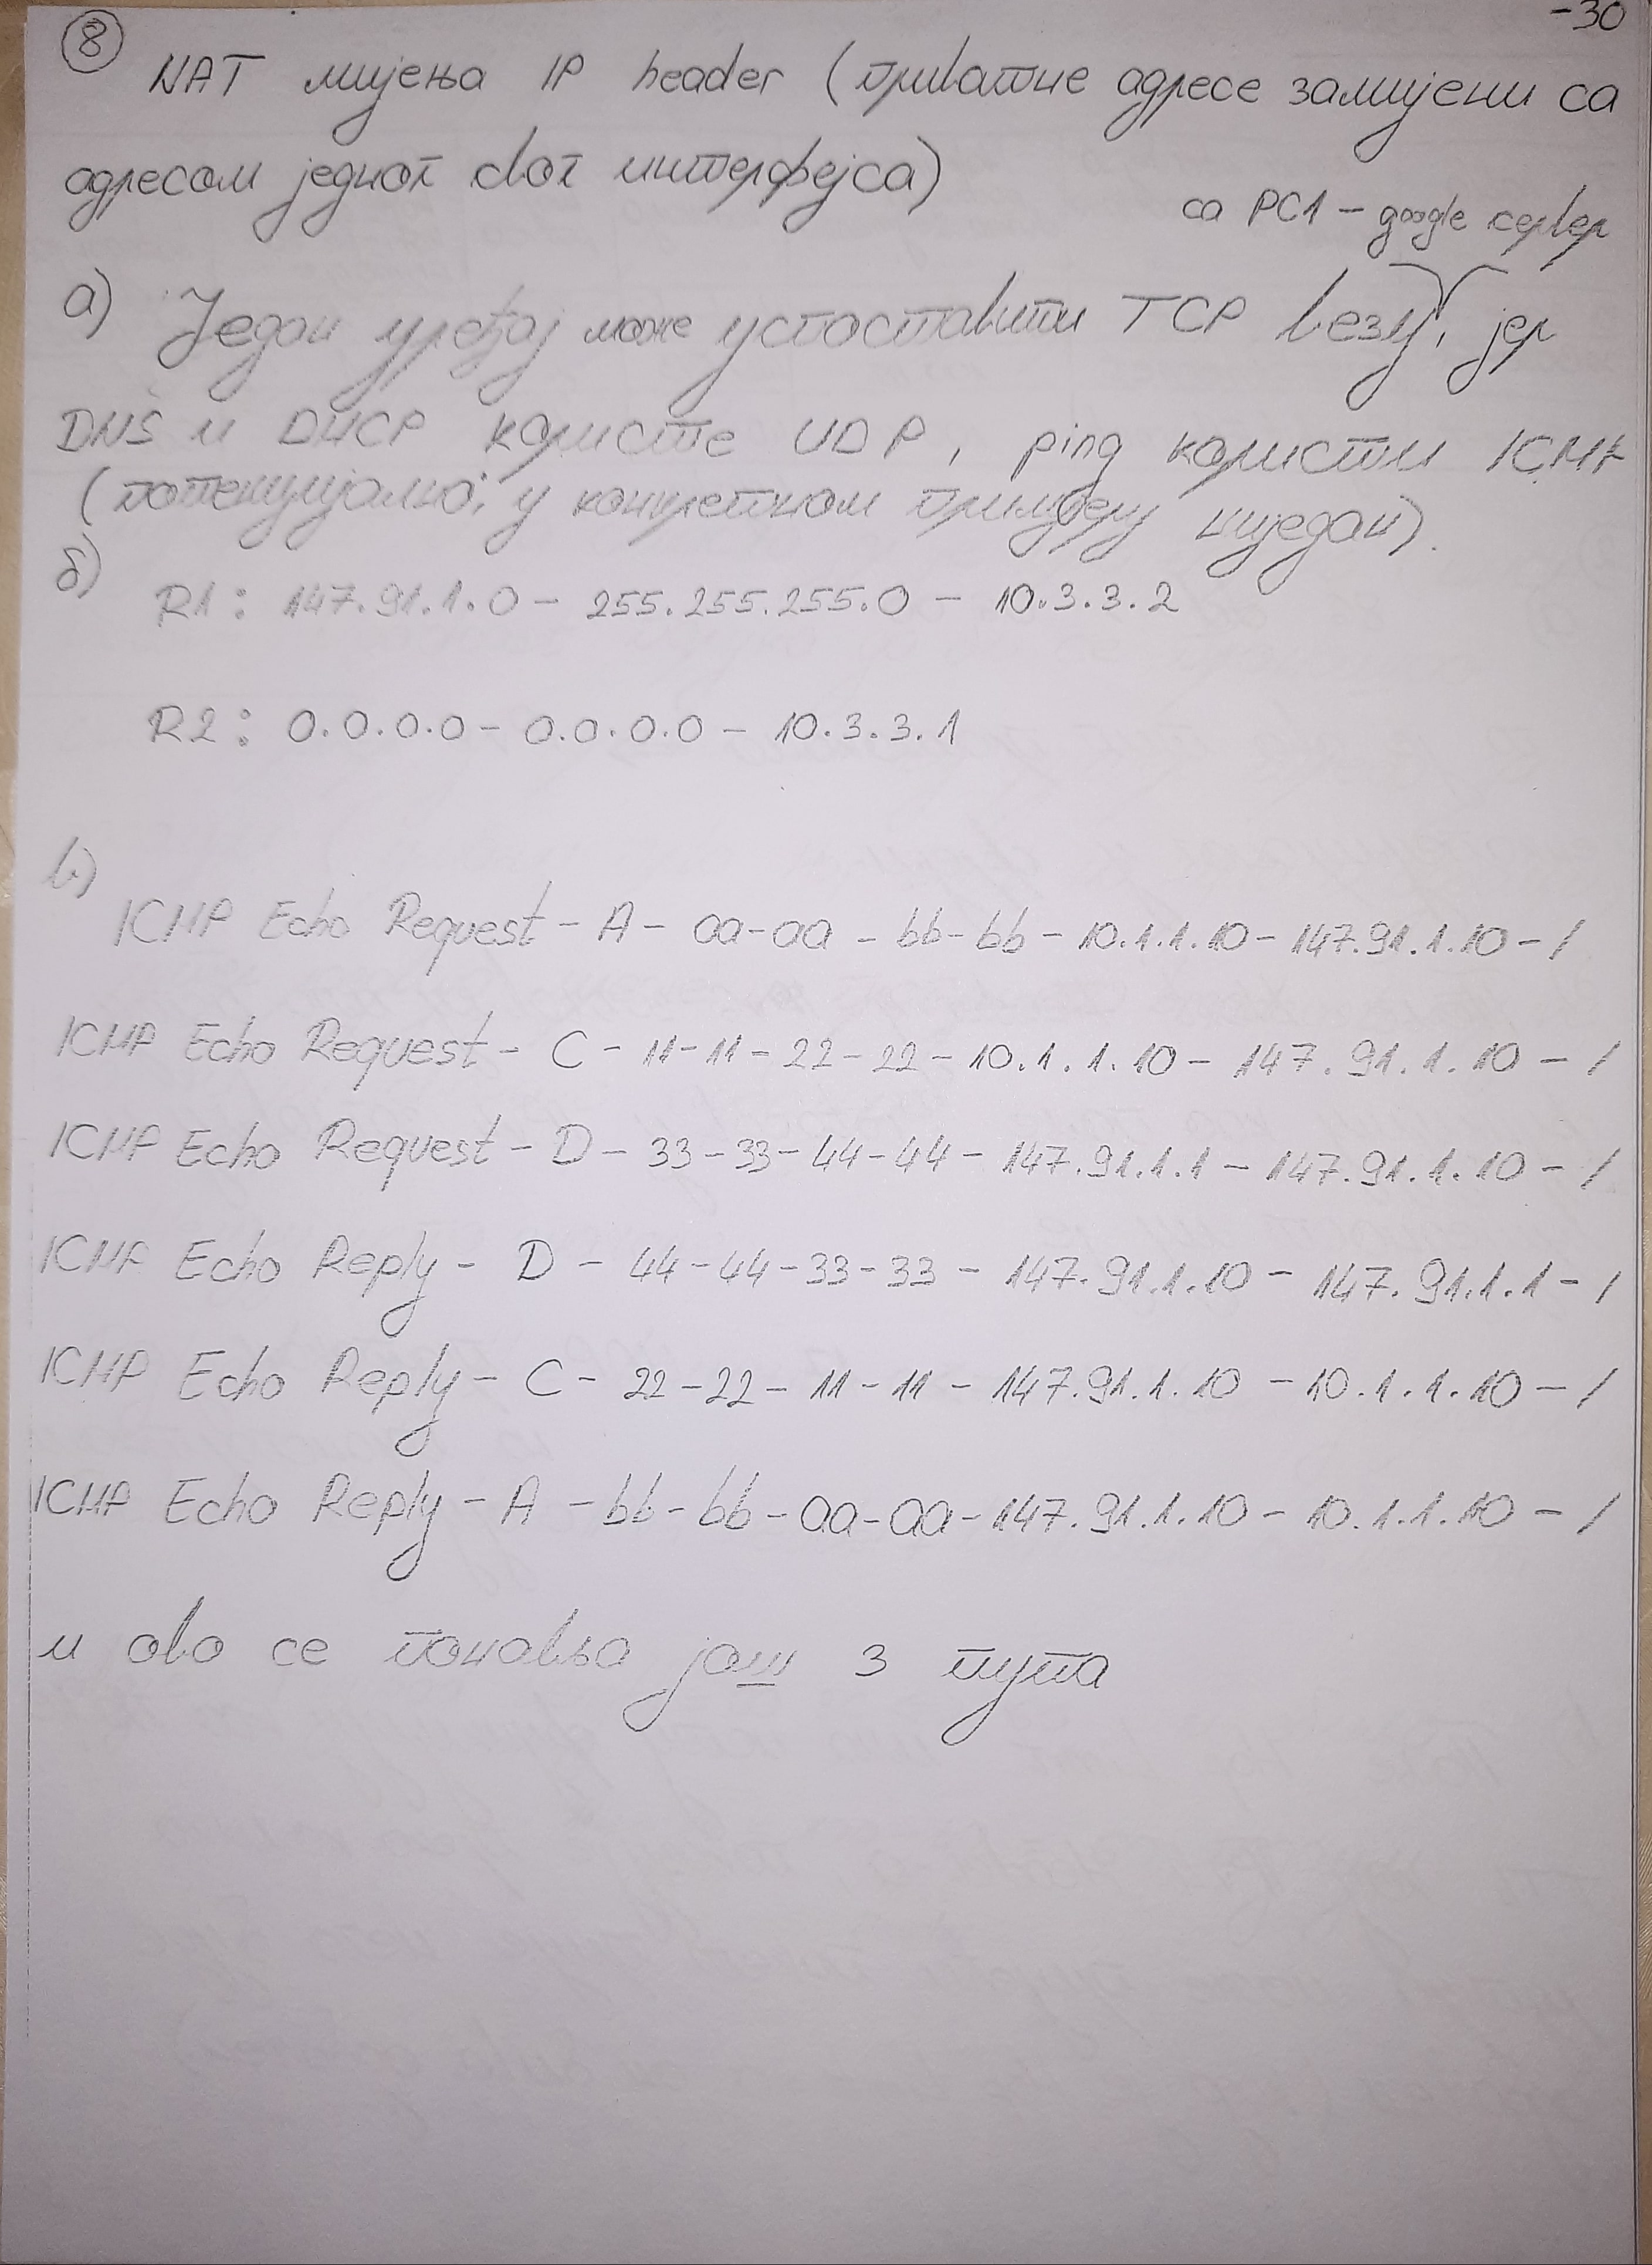 -30
8
NAT мијења IP header (приватне адресе замијени са
адресом једног свог интерфејса)
са PC1 - google сервер
а) Један уређај може успоставити TCP везу, јер
DNS и DHCP користе UDP, ping користи ICMP
(потенцијално; у конкретном примјеру ниједан).
б)
R1: 147.91.1.0 - 255.255.255.0 - 10.3.3.2
R2: 0.0.0.0 - 0.0.0.0 - 10.3.3.1
в)
ICMP Echo Request - A - aa-aa - bb-bb - 10.1.1.10 - 147.91.1.10 - /
ICMP Echo Request - C - 11-11 - 22-22 - 10.1.1.10 - 147.91.1.10 - /
ICMP Echo Request - D - 33-33 - 44-44 - 147.91.1.1 - 147.91.1.10 - /
ICMP Echo Reply - D - 44-44 - 33-33 - 147.91.1.10 - 147.91.1.1 - /
ICMP Echo Reply - C - 22-22 - 11-11 - 147.91.1.10 - 10.1.1.10 - /
ICMP Echo Reply - A - bb-bb - aa-aa - 147.91.1.10 - 10.1.1.10 - /
и ово се понавља још 3 пута